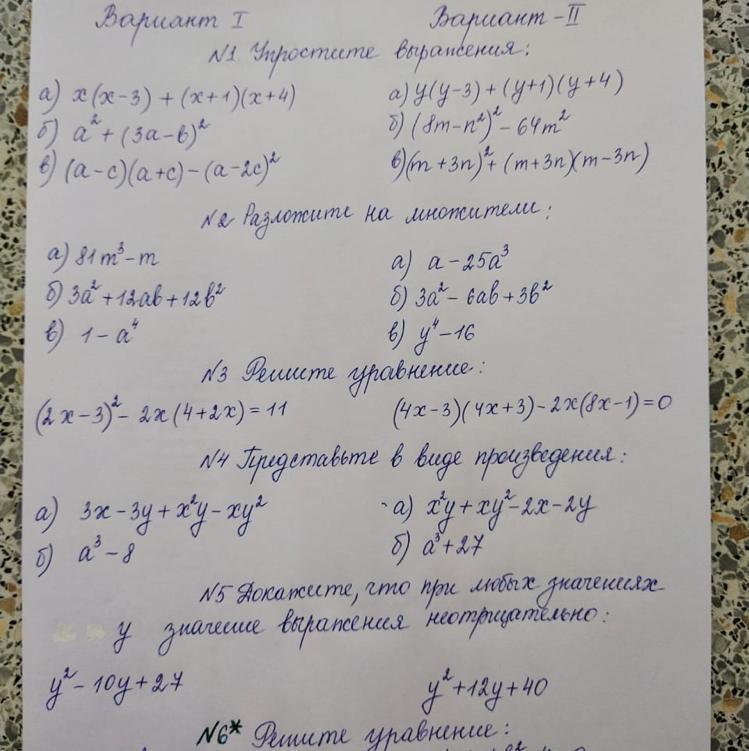 Вариант I Вариант-II
№1 Упростите выражения:
а) x(x-3)+(x+1)(x+4) а) y(y-3)+(y+1)(y+4)
б) a²+(3a-b)² б) (8m-n²)²-64m²
в) (a-c)(a+c)-(a-2c)² в) (m+3n)²+(m+3n)(m-3n)
№2 Разложите на множители:
а) 81m³-m а) a-25a³
б) 3a²+12ab+12b² б) 3a²-6ab+3b²
в) 1-a⁴ в) y⁴-16
№3 Решите уравнение:
(2x-3)²-2x(4+2x)=11 (4x-3)(4x+3)-2x(8x-1)=0
№4 Представьте в виде произведения:
а) 3x-3y+x²y-xy² а) x²y+xy²-2x-2y
б) a³-8 б) a³+27
№5 Докажите, что при любых значениях
y значение выражения неотрицательно:
y²-10y+27 y²+12y+40
№6* Решите уравнение: